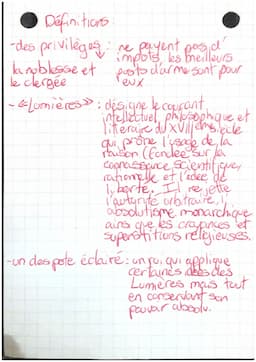 Définitions
-des privilèges : ne payent pas d'
impots, les meilleurs
la noblesse et
posts d'arme sont pour
le clergée
eux
- «Lumières» : désigne le courant
intellectuel philosophique et
litteraire du XVIIIème siècle
qui prône l'usage de la
raison (fondée sur la
connaissance scientifique,
rationnelle et l'idée de
liberté. Il rejette
l'autorité arbitraire, l'
absolutisme monarchique
ainsi que les croyances et
superstitions religieuses.
-un despote éclairé: un roi qui applique
certaines idées des
Lumières mais tout
en conservant son
pouvoir absolu.